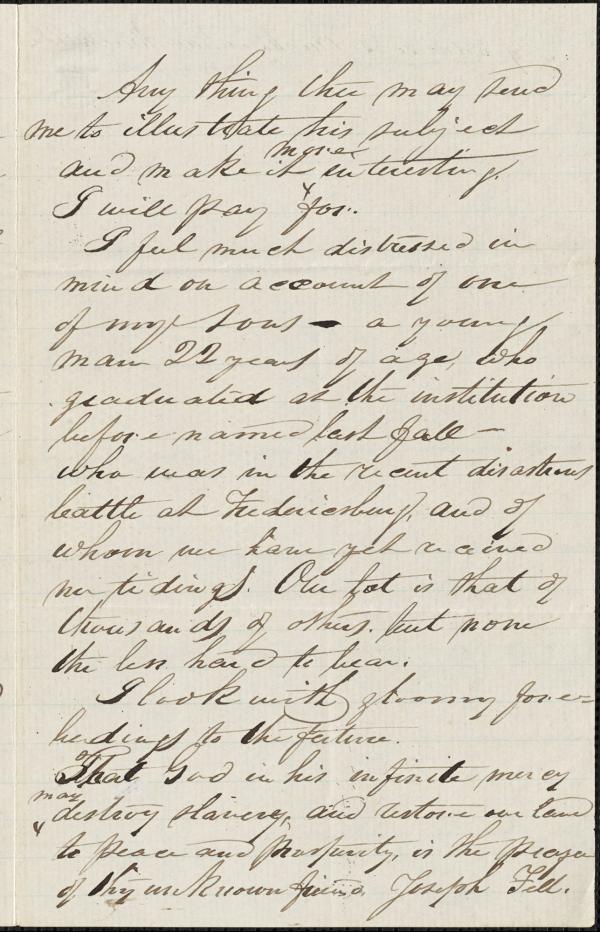 Any thing thee may send
me to illustrate his subject
and make it more interesting.
I will pay for.
I feel much distressed in
mind on account of one
of my sons - a young
man 22 years of age, who
graduated at the institution
before named last fall -
who was in the recent disastrous
battle at Fredericsburg, and of
whom we have yet received
no tidings. Our lot is that of
thousands of others. but none
the less hard to bear.
I look with gloomy fore=
bodings to the future.
That God in his infinite mercy
may destroy slavery, and restore our land
to peace and prosperity, is the prayer
of thy unknown friend Joseph Fell.